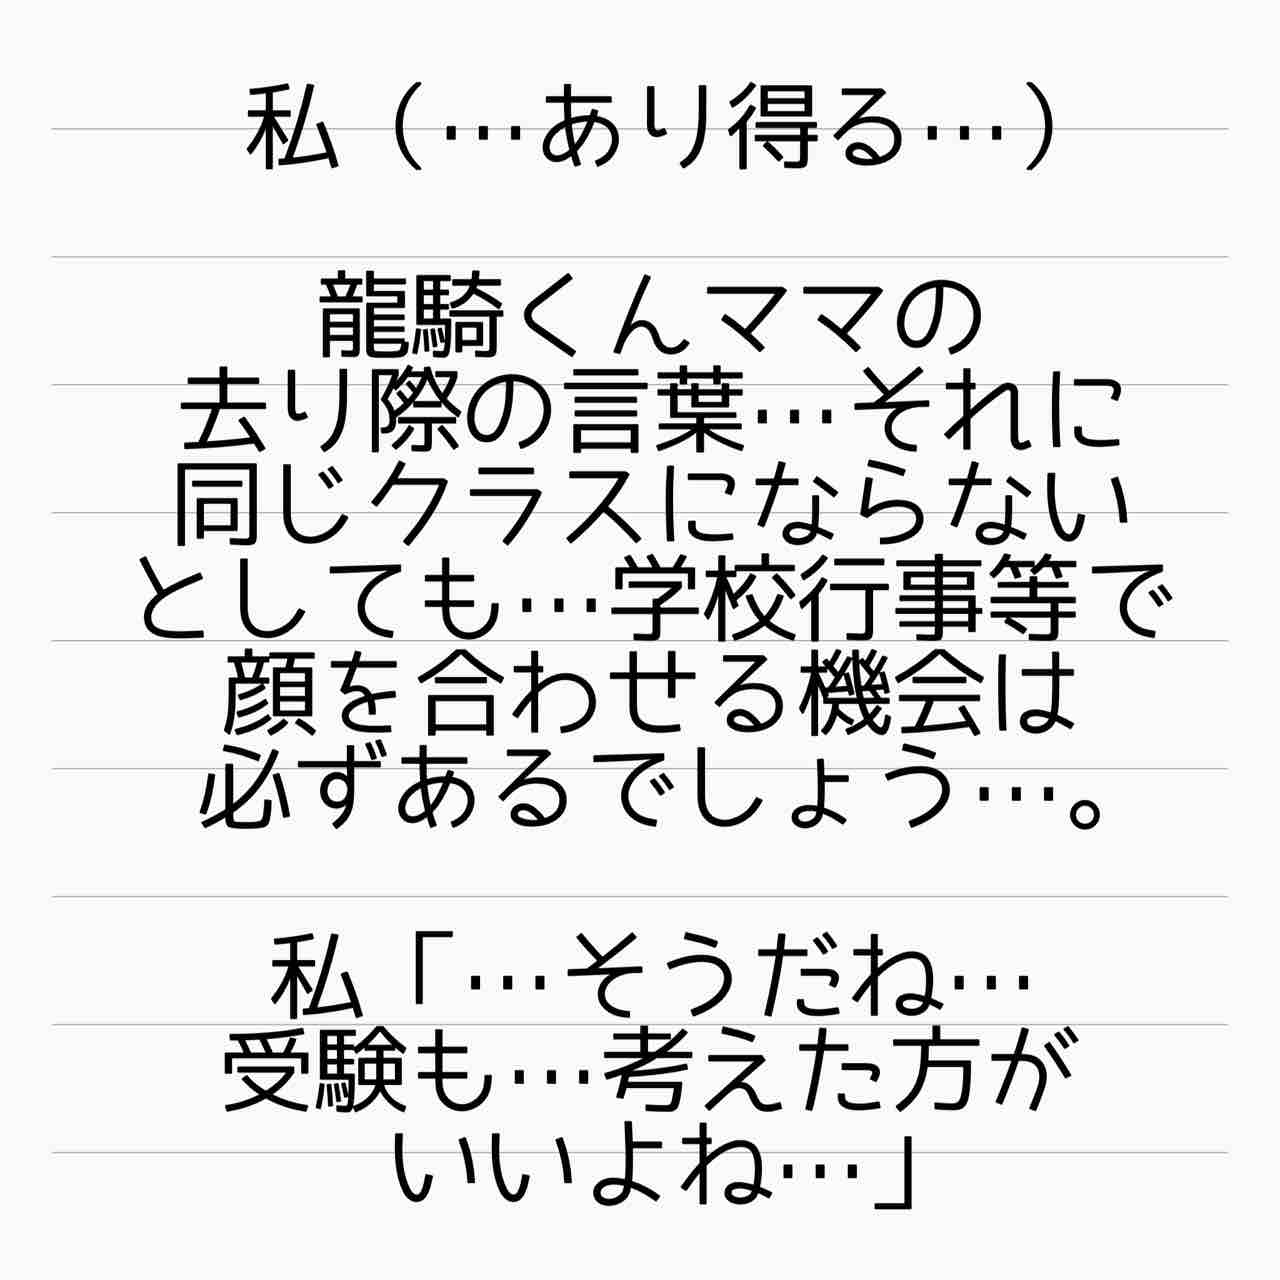 私（…あり得る…）
龍騎くんママの
去り際の言葉…それに
同じクラスにならない
としても…学校行事等で
顔を合わせる機会は
必ずあるでしょう…。
私「…そうだね…
受験も…考えた方が
いいよね…」